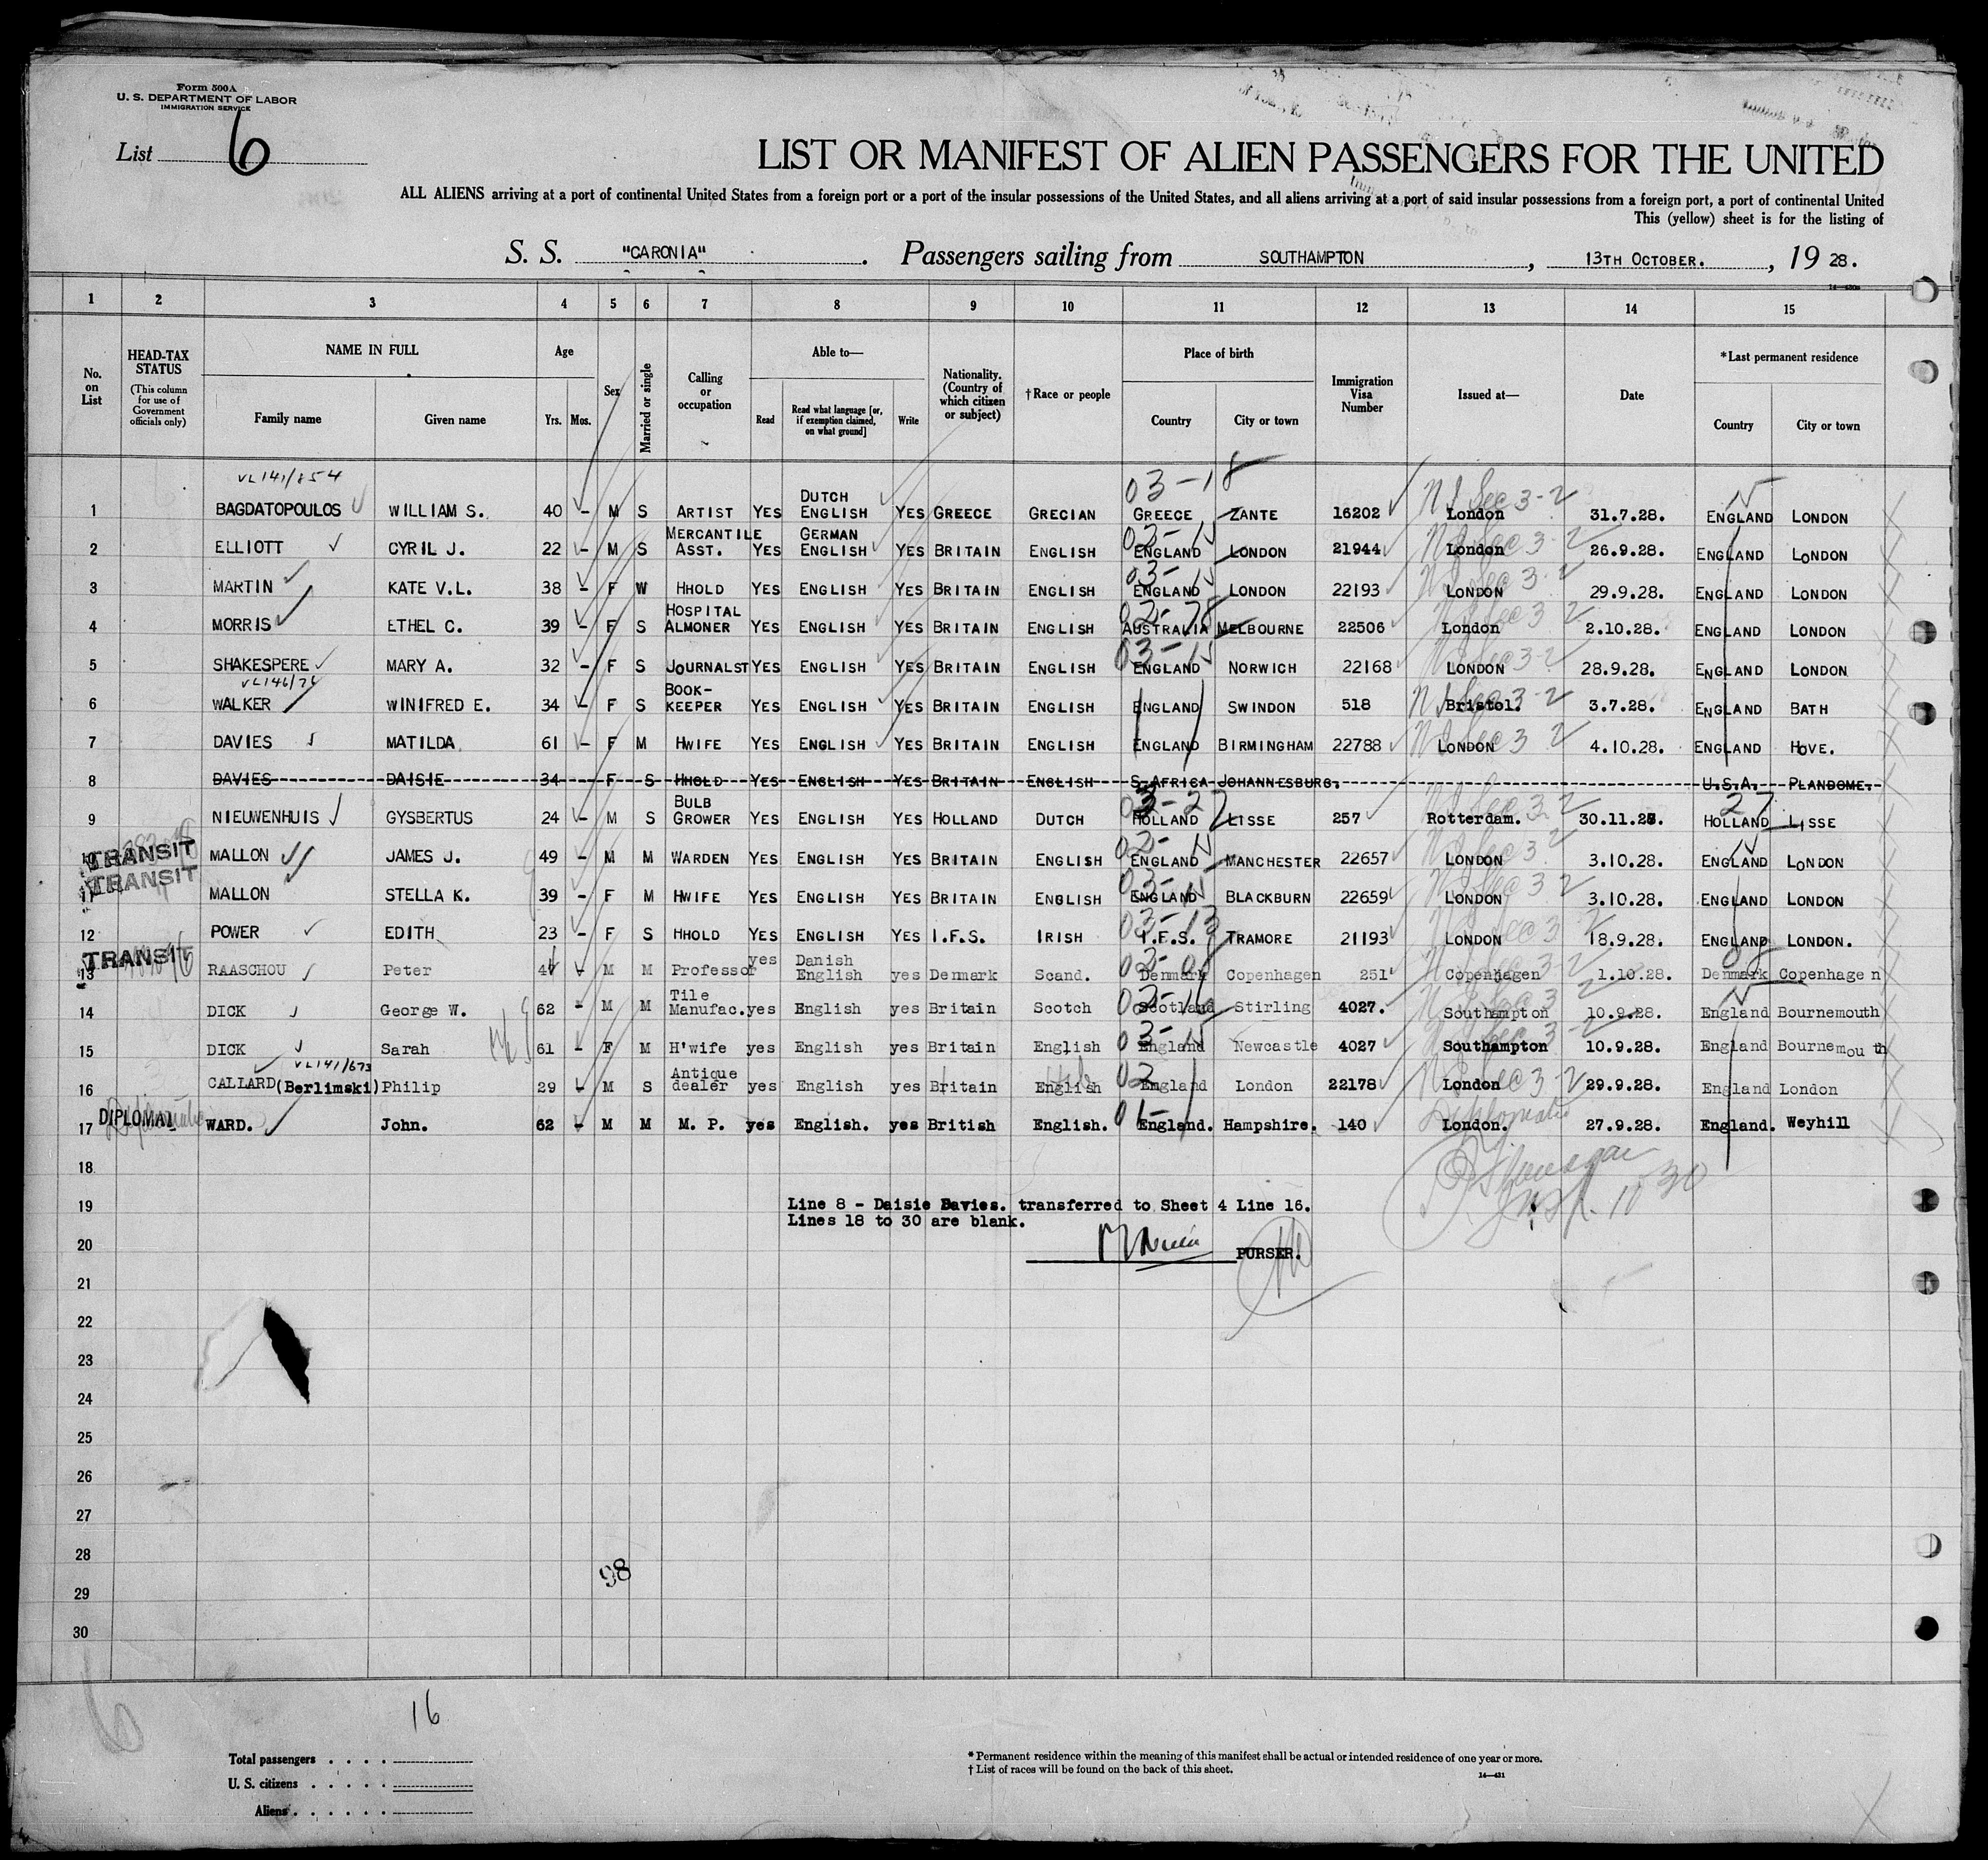 Form 500A
U. S. DEPARTMENT OF LABOR
IMMIGRATION SERVICE
List 6
LIST OR MANIFEST OF ALIEN PASSENGERS FOR THE UNITED
ALL ALIENS arriving at a port of continental United States from a foreign port or a port of the insular possessions of the United States, and all aliens arriving at a port of said insular possessions from a foreign port, a port of continental United
This (yellow) sheet is for the listing of
S. S. "CARONIA". Passengers sailing from SOUTHAMPTON, 13TH OCTOBER., 19 28.
1 2 3 4 5 6 7 8 9 10 11 12 13 14 15
No. on List
HEAD-TAX STATUS
(This column for use of Government officials only)
NAME IN FULL
Family name Given name
Age
Yrs. Mos.
Sex
Married or single
Calling or occupation
Able to—
Read Read what language [or, if exemption claimed, on what ground] Write
Nationality. (Country of which citizen or subject)
†Race or people
Place of birth
Country City or town
Immigration Visa Number
Issued at—
Date
*Last permanent residence
Country City or town
VL141/854 03-18 N I Sec 3-2
1 BAGDATOPOULOS WILLIAM S. 40 - M S ARTIST YES DUTCH ENGLISH YES GREECE GRECIAN GREECE ZANTE 16202 London 31.7.28. ENGLAND LONDON
2 ELLIOTT CYRIL J. 22 - M S MERCANTILE ASST. YES GERMAN ENGLISH YES BRITAIN ENGLISH ENGLAND LONDON 21944 London 26.9.28. ENGLAND LONDON
3 MARTIN KATE V.L. 38 - F W HHOLD YES ENGLISH YES BRITAIN ENGLISH ENGLAND LONDON 22193 LONDON 29.9.28. ENGLAND LONDON
4 MORRIS ETHEL C. 39 - F S HOSPITAL ALMONER YES ENGLISH YES BRITAIN ENGLISH AUSTRALIA MELBOURNE 22506 London 2.10.28. ENGLAND LONDON
5 SHAKESPERE MARY A. 32 - F S JOURNALST YES ENGLISH YES BRITAIN ENGLISH ENGLAND NORWICH 22168 LONDON 28.9.28. ENGLAND LONDON
VL146/76
6 WALKER WINIFRED E. 34 - F S BOOK-KEEPER YES ENGLISH YES BRITAIN ENGLISH ENGLAND SWINDON 518 Bristol. 3.7.28. ENGLAND BATH
7 DAVIES MATILDA 61 - F M HWIFE YES ENGLISH YES BRITAIN ENGLISH ENGLAND BIRMINGHAM 22788 LONDON 4.10.28. ENGLAND HOVE.
8 DAVIES DAISIE 34 F S HHOLD YES ENGLISH YES BRITAIN ENGLISH S.AFRICA JOHANNESBURG. U.S.A. PLANDOME.
9 NIEUWENHUIS GYSBERTUS 24 - M S BULB GROWER YES ENGLISH YES HOLLAND DUTCH HOLLAND LISSE 257 Rotterdam. 30.11.28. HOLLAND LISSE
10 TRANSIT MALLON JAMES J. 49 - M M WARDEN YES ENGLISH YES BRITAIN ENGLISH ENGLAND MANCHESTER 22657 LONDON 3.10.28. ENGLAND LONDON
11 TRANSIT MALLON STELLA K. 39 - F M HWIFE YES ENGLISH YES BRITAIN ENGLISH ENGLAND BLACKBURN 22659 LONDON 3.10.28. ENGLAND LONDON
12 POWER EDITH 23 - F S HHOLD YES ENGLISH YES I.F.S. IRISH I.F.S. TRAMORE 21193 LONDON 18.9.28. ENGLAND LONDON.
13 TRANSIT RAASCHOU Peter - M M Professor yes Danish English yes Denmark Scand. Denmark Copenhagen 251 Copenhagen 1.10.28. Denmark Copenhagen
14 DICK George W. 62 - M M Tile Manufac. yes English yes Britain Scotch Scotland Stirling 4027. Southampton 10.9.28. England Bournemouth
15 DICK Sarah 61 - F M H'wife yes English yes Britain English England Newcastle 4027 Southampton 10.9.28. England Bournemouth
VL141/673
16 CALLARD (Berlimski) Philip 29 - M S Antique dealer yes English yes Britain English England London 22178 London 29.9.28. England London
17 DIPLOMAT WARD. John. 62 - M M M. P. yes English. yes British English. England. Hampshire. 140 London. 27.9.28. England. Weyhill
Diplomatic
18
19 Line 8 - Daisie Davies. transferred to Sheet 4 Line 16.
Lines 18 to 30 are blank.
20 PURSER.
21
22
23
24
25
26
27
28
98
29
30
6
16
Total passengers . . . .
U. S. citizens . . . . .
Aliens . . . . . .
* Permanent residence within the meaning of this manifest shall be actual or intended residence of one year or more.
† List of races will be found on the back of this sheet.
14—431